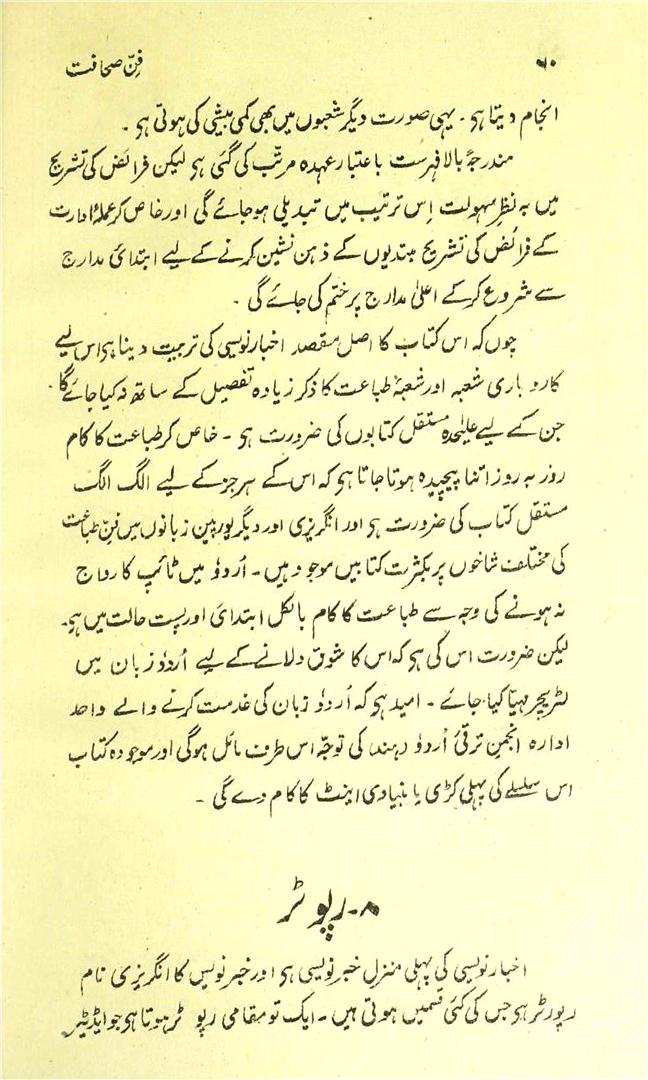 ۶۰ فنِّ صحافت
انجام دیتا ہی۔ یہی صورت دیگر شعبوں میں بھی کمی بیشی کی ہوتی ہی۔
مندرجۂ بالا فہرست باعتبار عہدہ مرتّب کی گئی ہی لیکن فرائض کی تشریح
میں بہ نظرِ سہولت اِس ترتیب میں تبدیلی ہوجائے گی اور خاص کر عملۂ ادارت
کے فرائض کی تشریح مبتدیوں کے ذہن نشین کرنے کے لیے ابتدائ مدارج
سے شروع کرکے اعلیٰ مدارج پر ختم کی جائے گی۔
چوں کہ اس کتاب کا اصل مقصد اخبار نویسی کی تربیت دینا ہی اس لیے
کاروباری شعبہ اور شعبۂ طباعت کا ذکر زیادہ تفصیل کے ساتھ نہ کیا جائے گا۔
جن کے لیے علیٰحدہ مستقل کتابوں کی ضرورت ہی۔ خاص کر طباعت کا کام
روز بہ روز اتنا پیچیدہ ہوتا جاتا ہی کہ اس کے ہر جز کے لیے الگ الگ
مستقل کتاب کی ضرورت ہی اور انگریزی اور دیگر یورپین زبانوں میں فنِّ طباعت
کی مختلف شاخوں پر بکثرت کتابیں موجود ہیں۔ اُردوٗ میں ٹائپ کا رواج
نہ ہونے کی وجہ سے طباعت کا کام بالکل ابتدائ اور پست حالت میں ہی۔
لیکن ضرورت اس کی ہی کہ اس کا شوق دلانے کے لیے اُردوٗ زبان میں
لٹریچر مہیّا کیا جائے۔ امید ہی کہ اُردوٗ زبان کی خدمت کرنے والے واحد
ادارہ انجمنِ ترقیٔ اُردوٗ (ہند) کی توجّہ اس طرف مائل ہوگی اور موجودہ کتاب
اس سلسلے کی پہلی کڑی یا بنیادی اینٹ کا کام دے گی۔
۸۔ رپوٹر
اخبار نویسی کی پہلی منزل خبر نویسی ہی اور خبر نویس کا انگریزی نام
رپورٹر ہی جس کی کئی قسمیں ہوتی ہیں۔ ایک تو مقامی رپوٹر ہوتا ہی جو ایڈیٹر